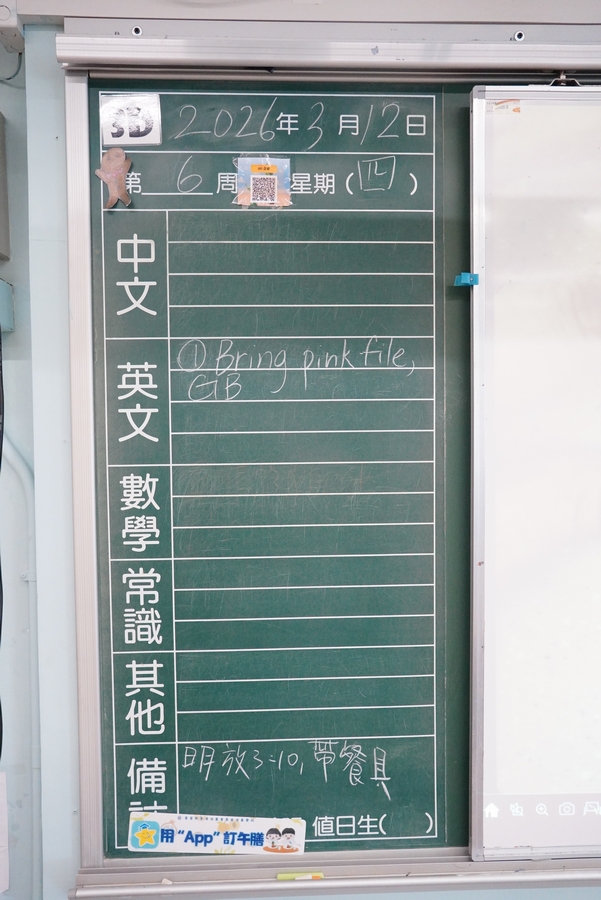 3D 2026年3月12日
第6周 星期(四)
中文
英文
① Bring pink file,
GB
數學
常識
其他
備
明放3:10,帶餐具
用“App”訂午膳
值日生( )